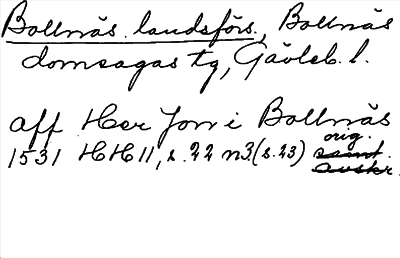 Bollnäs landsförs., Bollnäs
domsagas tg, Gävleb. l.
aff Her Jon i Bollnäs
orig.
1531 HH 11, s. 22 n3 (s. 23) samt.
avskr.